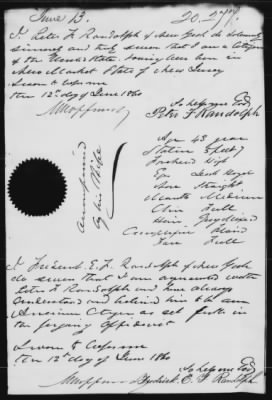 June 13. 20.277
I Peter F. Randolph of New York do solemnly
sincerely and truly swear that I am a Citizen
of the United States having been born in
New Market State of New Jersey
Sworn to before me
this 12th day of June 1860
So help me God
Peter F Randolph
Accompanied by his Wife
Age 43 years
Stature 5 feet 7
Forehead High
Eyes Dark Hazel
Nose Straight
Mouth Medium
Chin Full
Hair Grey
Complexion
Face Full
I Frederick E. F. Randolph of New York
do swear that I am acquainted with
Peter F Randolph and have always
understood and believed him to be an
American Citizen as set forth in
the foregoing affidavit
Sworn to before me
this 12th day of June 1860
So help me God
Fredrick. E. F Randolph